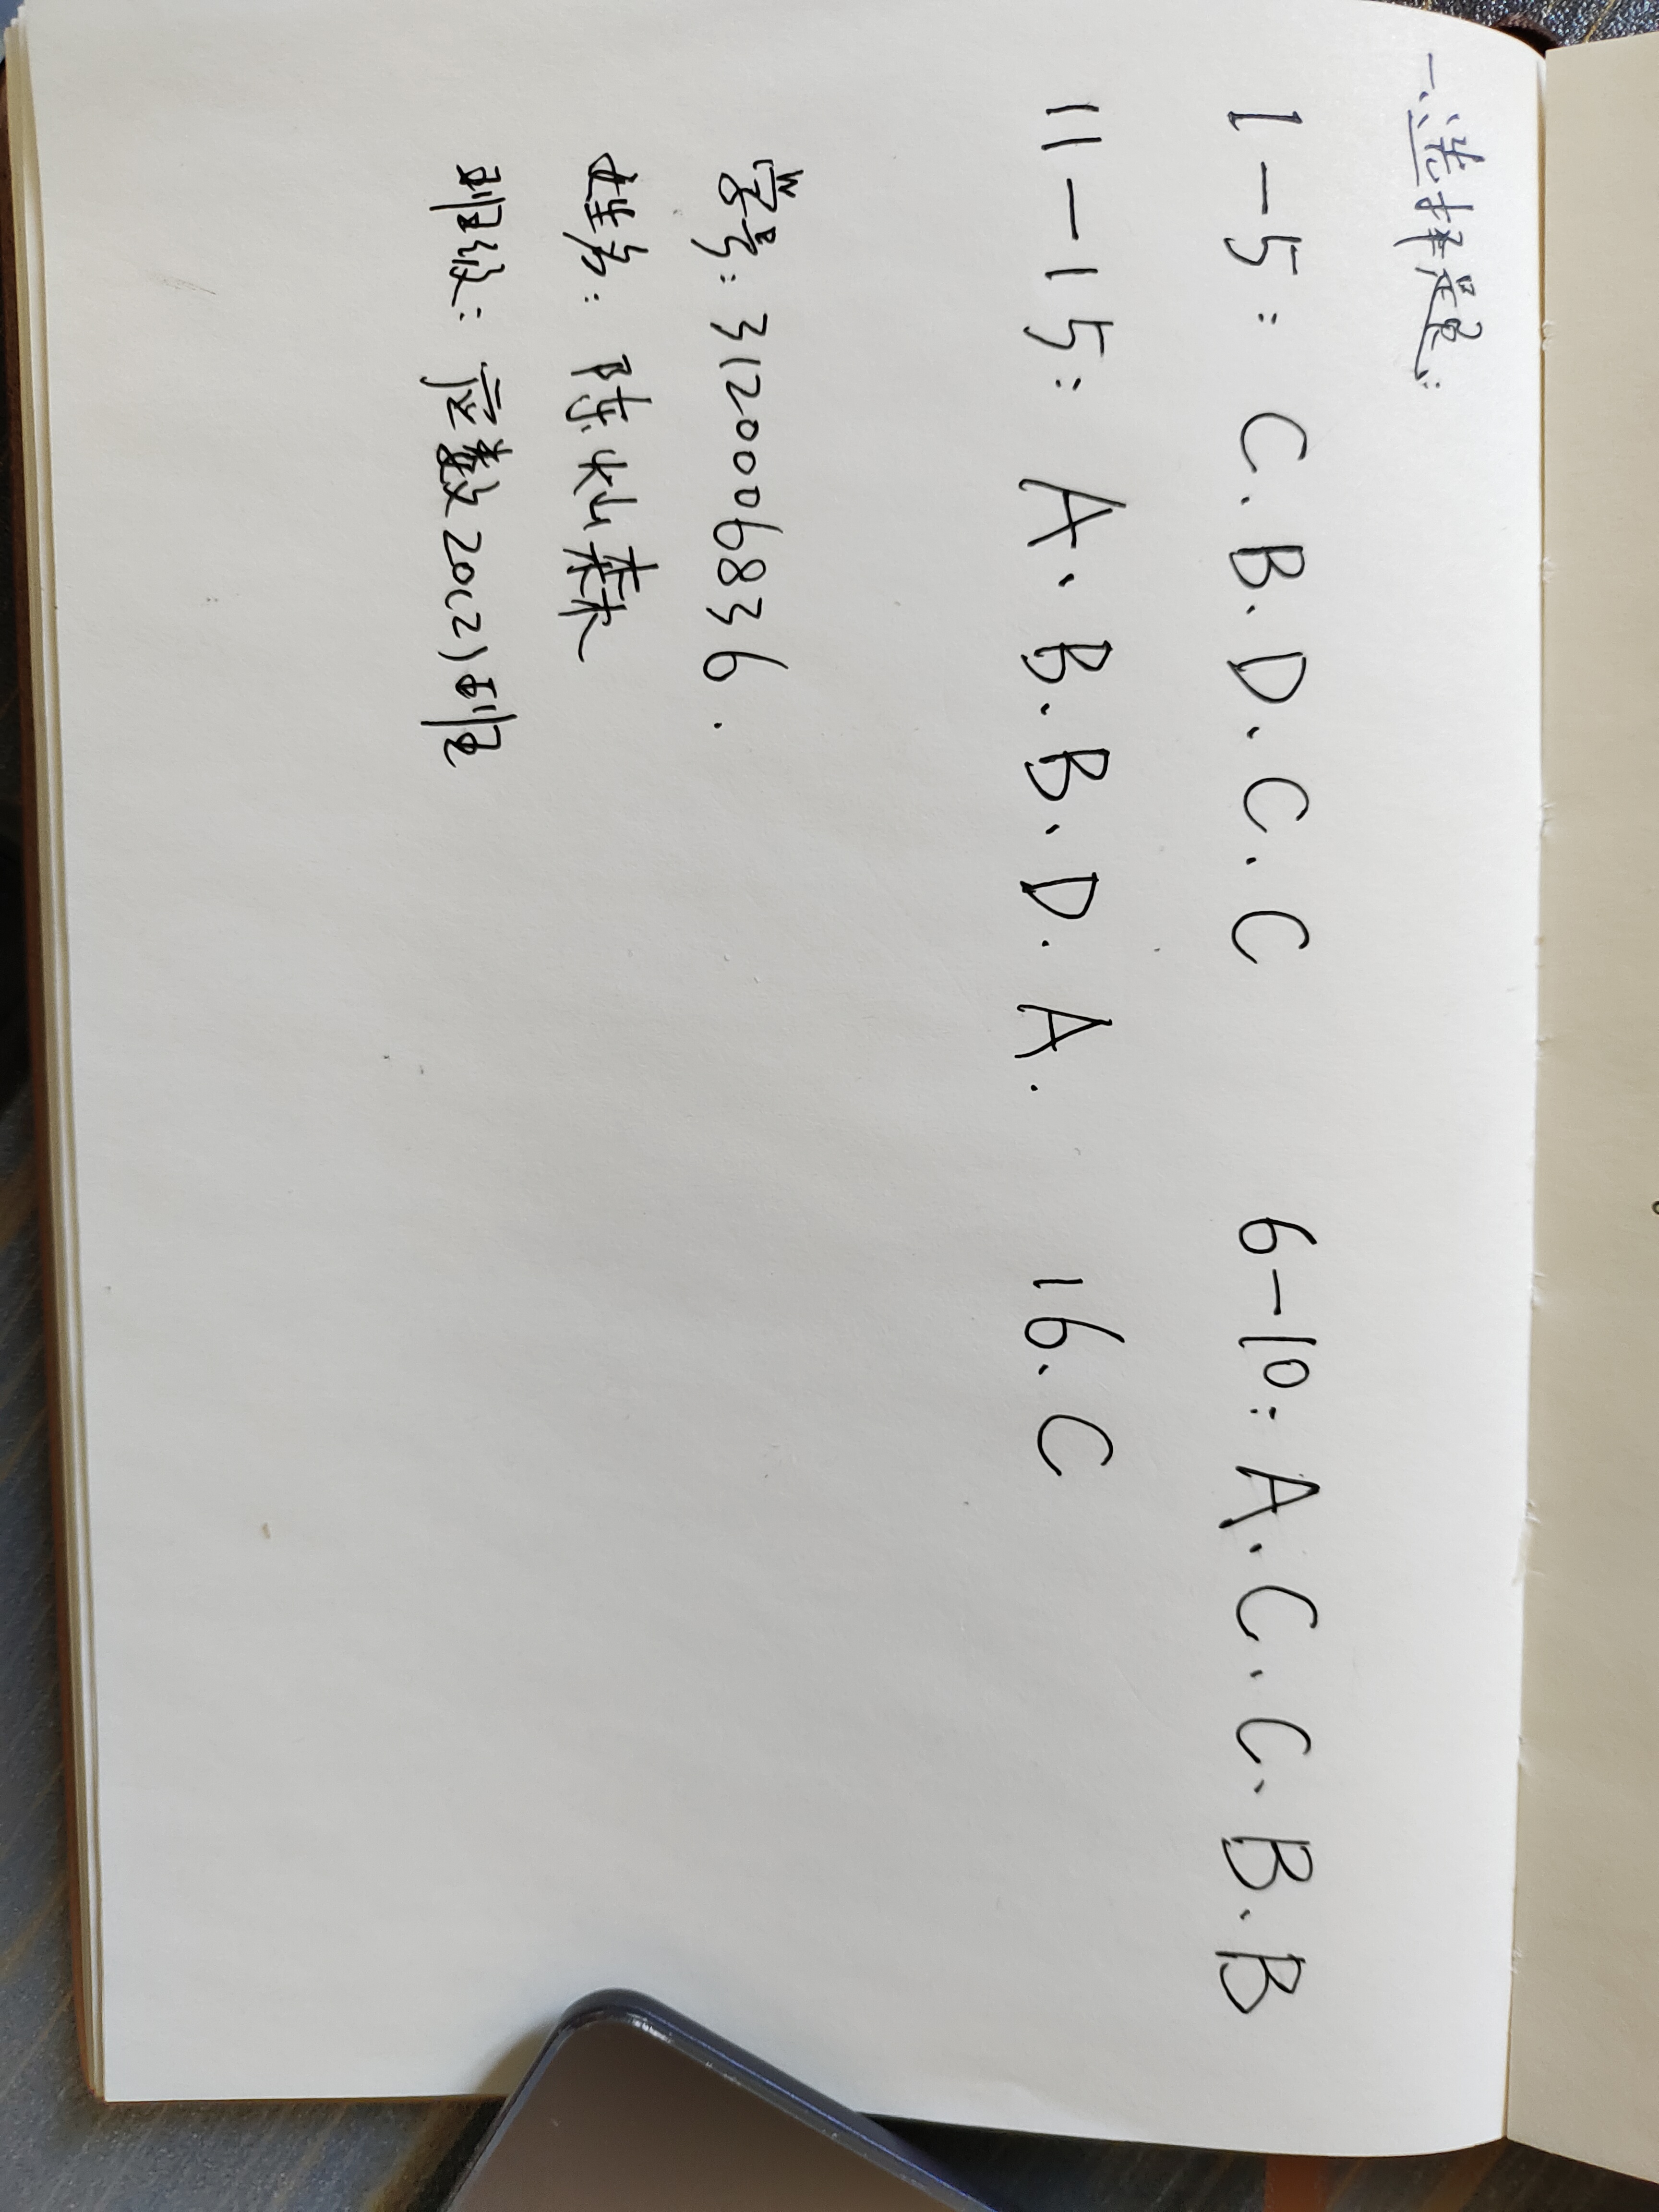 一、选择题:
1-5: C.B.D.C.C 6-10: A.C.C.B.B
11-15: A.B.B.D.A. 16.C
学号: 3120006836.
姓名: 陈灿森
班级: 应数20(2)班